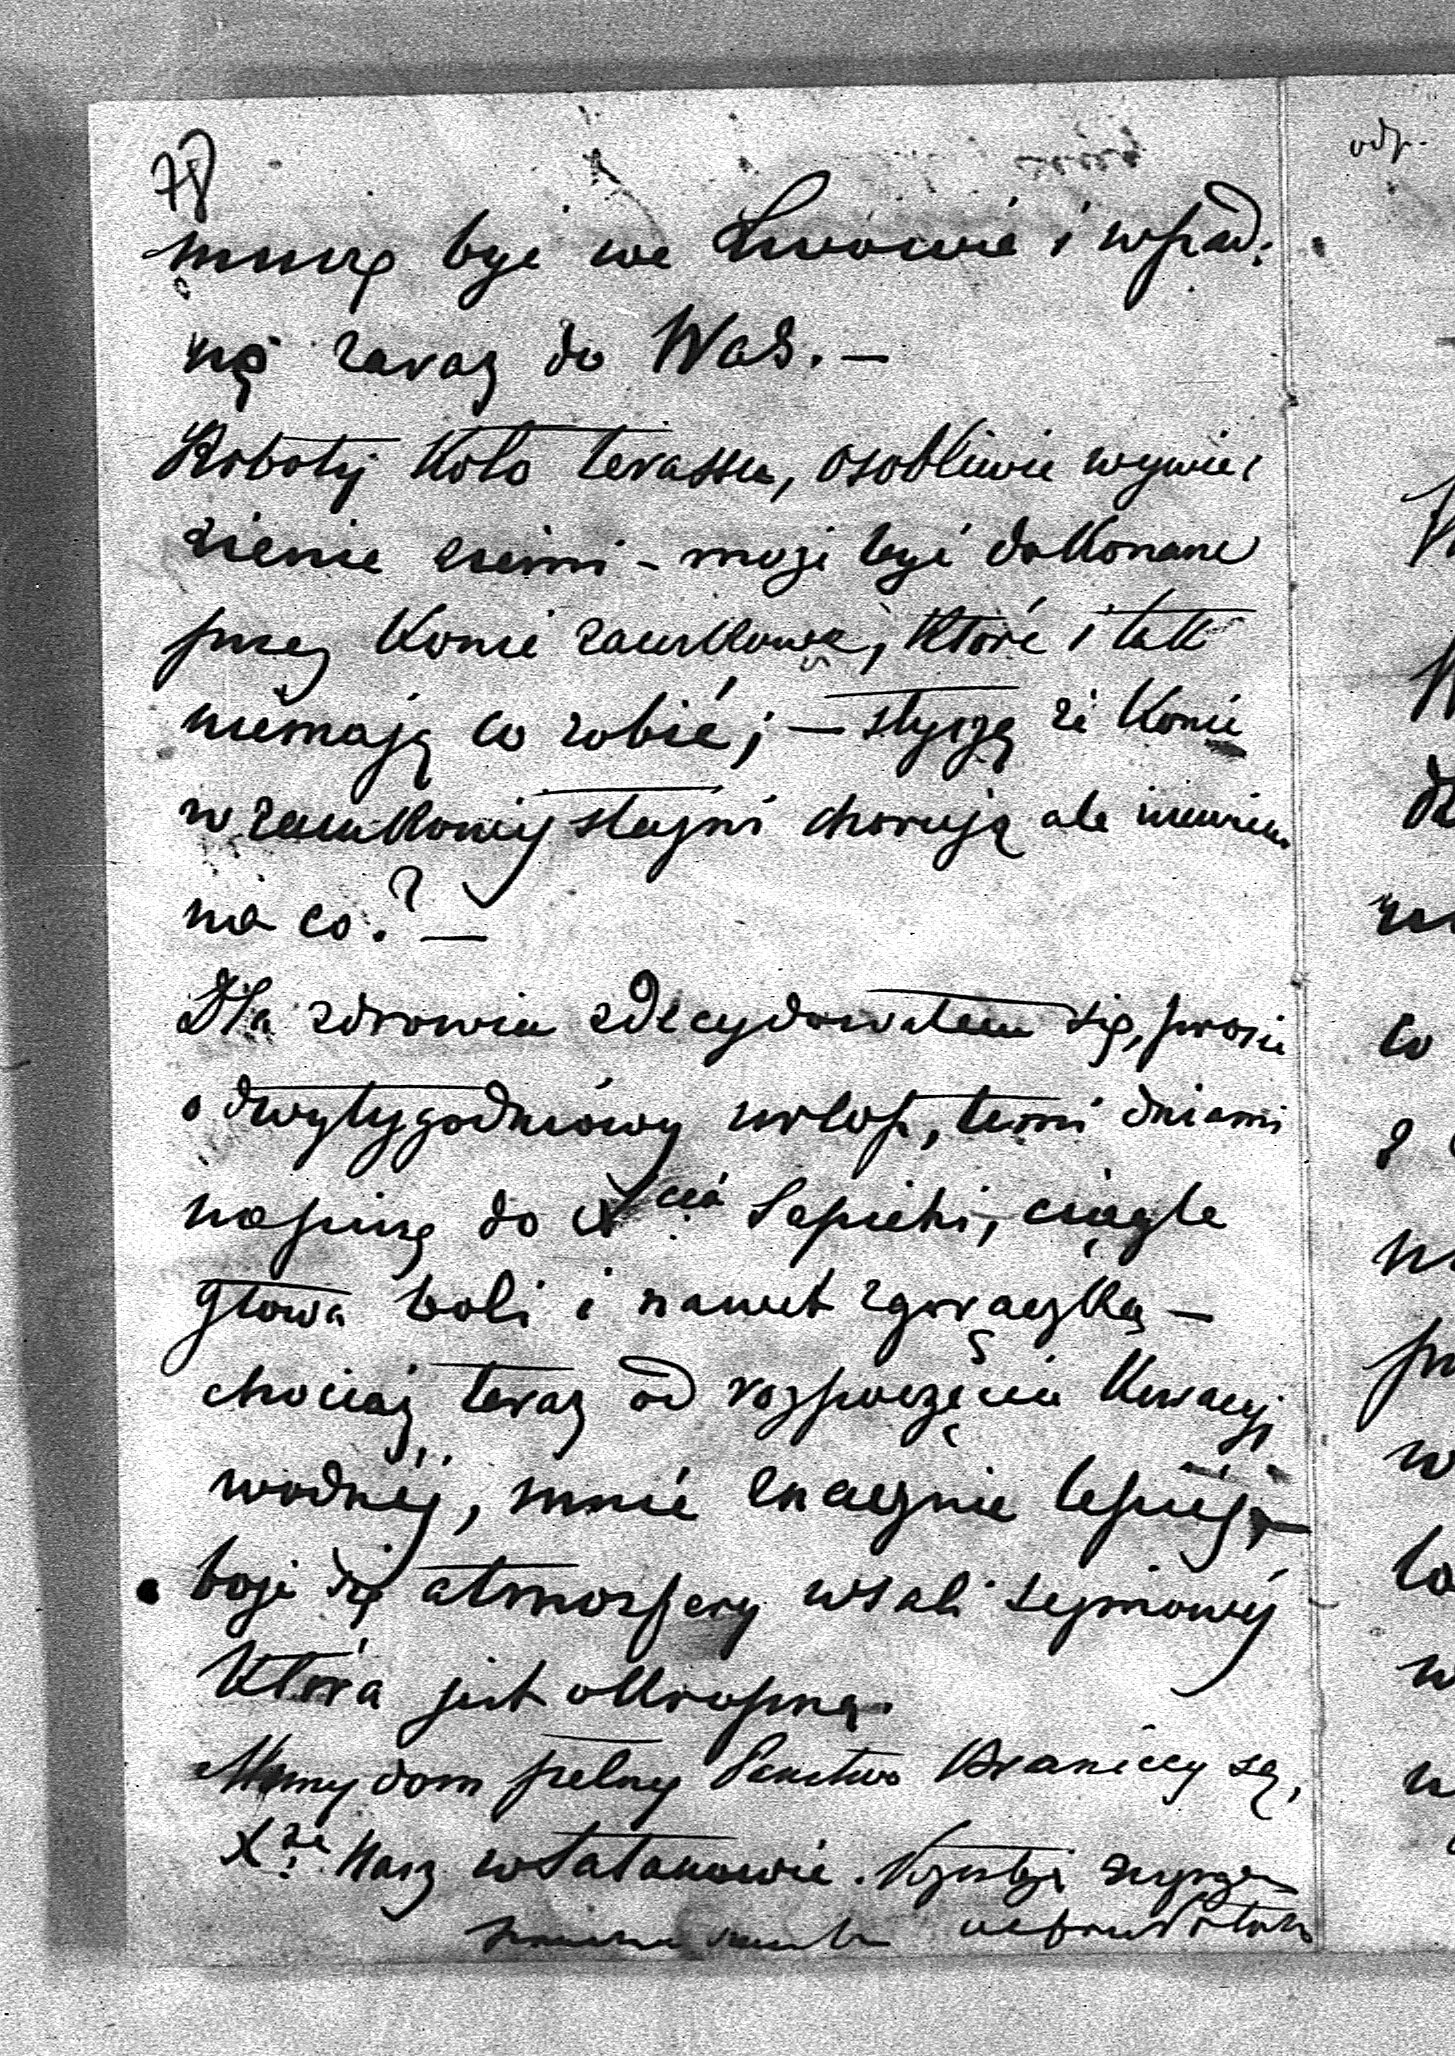 78
odp.
muszę być we Lwowie i wpad:
nę zaraz do Was. —
Roboty koło terassu, osobliwie wywie:
zienie ziemi - może być dokonane
przez konie zamkowe, które i tak
niemają co robić; — słyszę że konie
w zamkowéj stajni chorują ale niewiem
na co? —
Dla zdrowia zdecydowałem się, prosić
o dwytygodniówy urlop, temi dniami
napiszę do Xcia Sapiehi, ciągle
głowa boli i nawet z gorączką —
chociaż teraz od rozpoczęcia kuracyj
wodnéj, mnie znacznie lepiéj —
boję się atmosfery w sali sejmowéj
która jest okropną.
Mamy dom pełny Państwo Braniccy są,
Xże Nasz w Tatarowie.